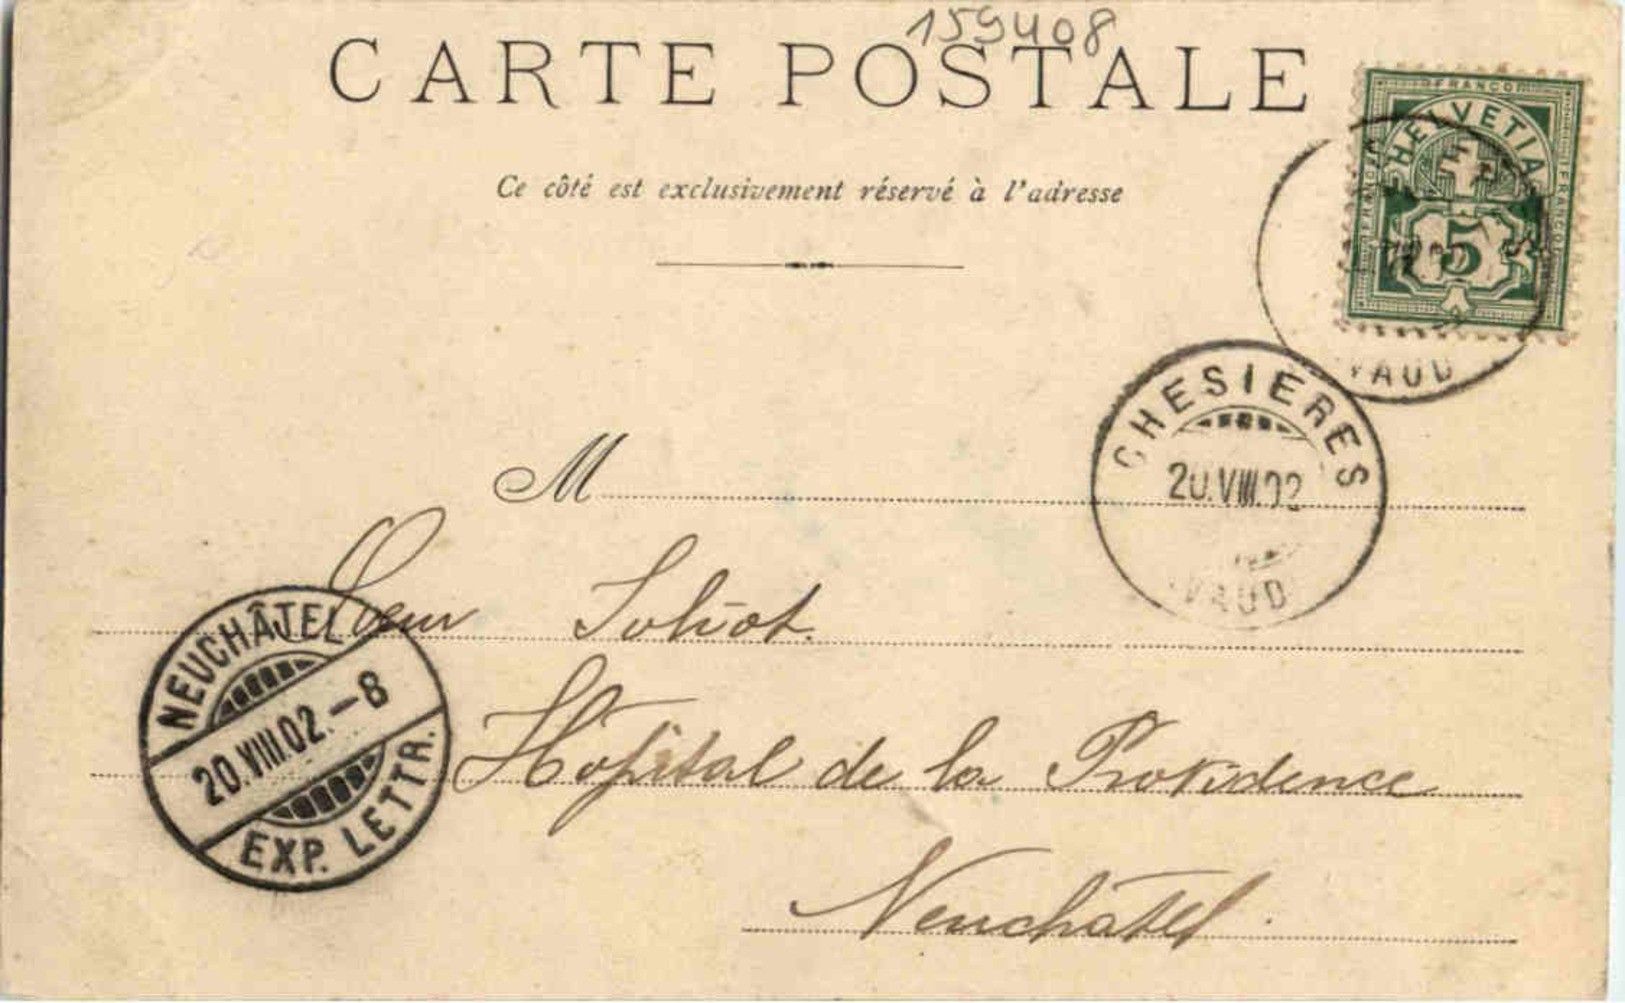 159408
CARTE POSTALE
Ce côté est exclusivement réservé à l'adresse
FRANCO
FRANCO
FRANCO
HELVETIA
5
VAUD
CHESIERES
20.VIII.02
VAUD
M
Soliot.
Hôpital de la Providence
Neuchâtel.
NEUCHÂTEL
20.VIII.02.-8
EXP. LETTR.